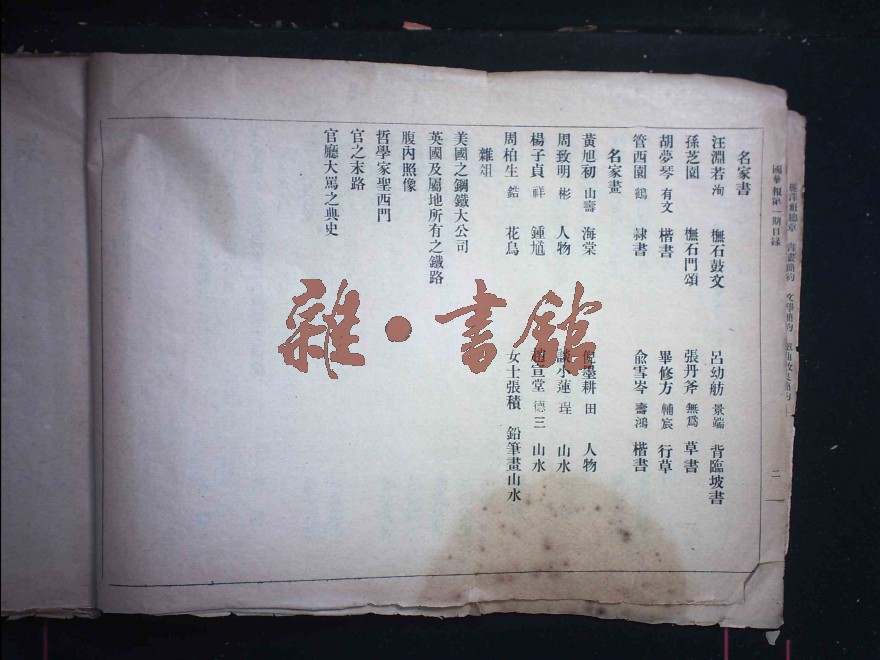 國華報第一期目錄
二
名家書
汪淵若 洵 橅石鼓文 呂幼舫 景端 背臨坡書
孫芝園 橅石門頌 張丹斧 無為 草書
胡夢琴 有文 楷書 畢修方 輔宸 行草
管西園 鶴 隸書 俞雪岑 壽鴻 楷書
名家畫
黃旭初 山壽 海棠 倪墨耕 田 人物
周致明 彬 人物 談小蓮 珵 山水
楊子貞 祥 鍾馗 趙宣堂 德三 山水
周柏生 鋯 花鳥 女士張積 鉛筆畫山水
雜俎
美國之鋼鐵大公司
英國及屬地所有之鐵路
腹內照像
哲學家聖西門
官之末路
官廳大罵之典史
雜·書館